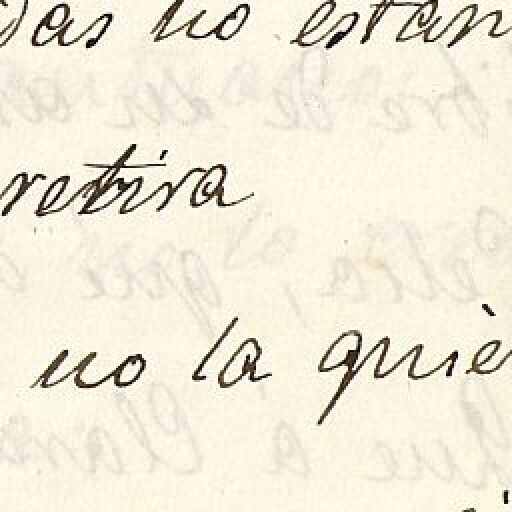 das no estan
retira
no la quiè